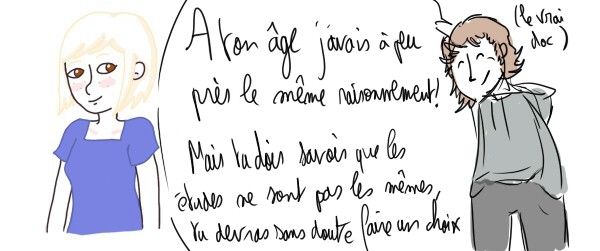 A ton âge j'avais à peu
près le même raisonnement!
Mais tu dois savoir que les
études ne sont pas les mêmes,
tu devras sans doute faire un choix
(le vrai
doc)